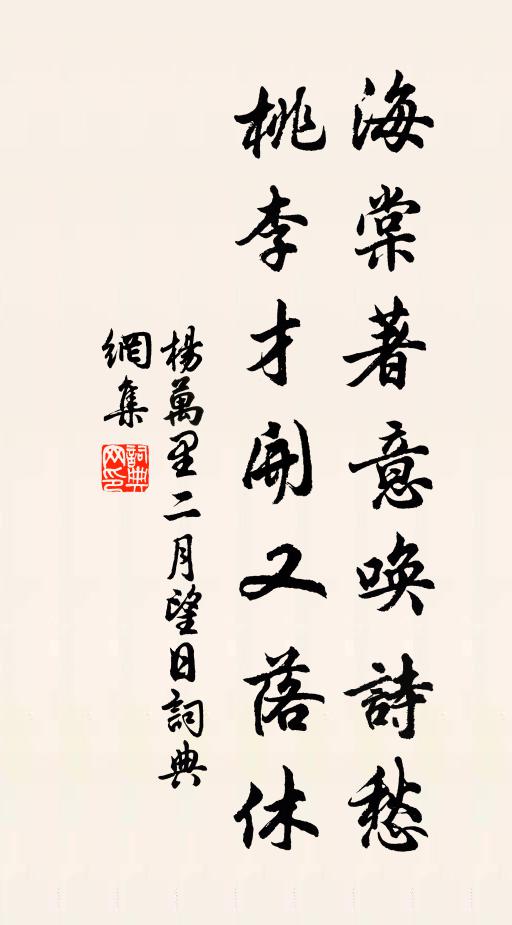 海棠著意喚詩愁
桃李才開又落休
楊萬里二月望日詞典
網集
詞典
网印